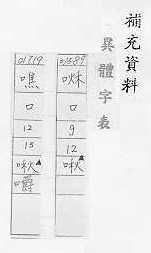 補充資料
異體字表
01589
咻
口
9
12
啾▲
01719
噍
口
12
15
啾▲
嚼